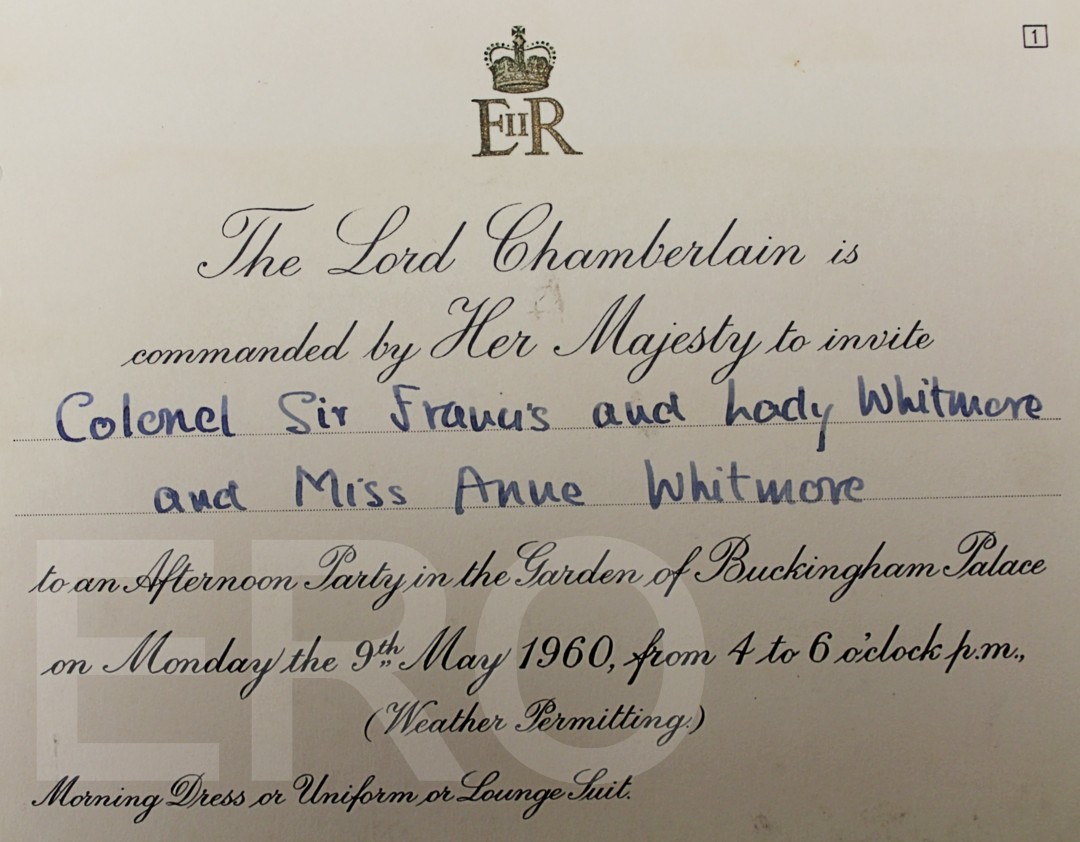 1
EIIR
The Lord Chamberlain is
commanded by Her Majesty to invite
Colonel Sir Francis and Lady Whitmore
and Miss Anne Whitmore
to an Afternoon Party in the Garden of Buckingham Palace
on Monday the 9th May 1960, from 4 to 6 o'clock p.m.,
(Weather Permitting.)
Morning Dress or Uniform or Lounge Suit.
ERO